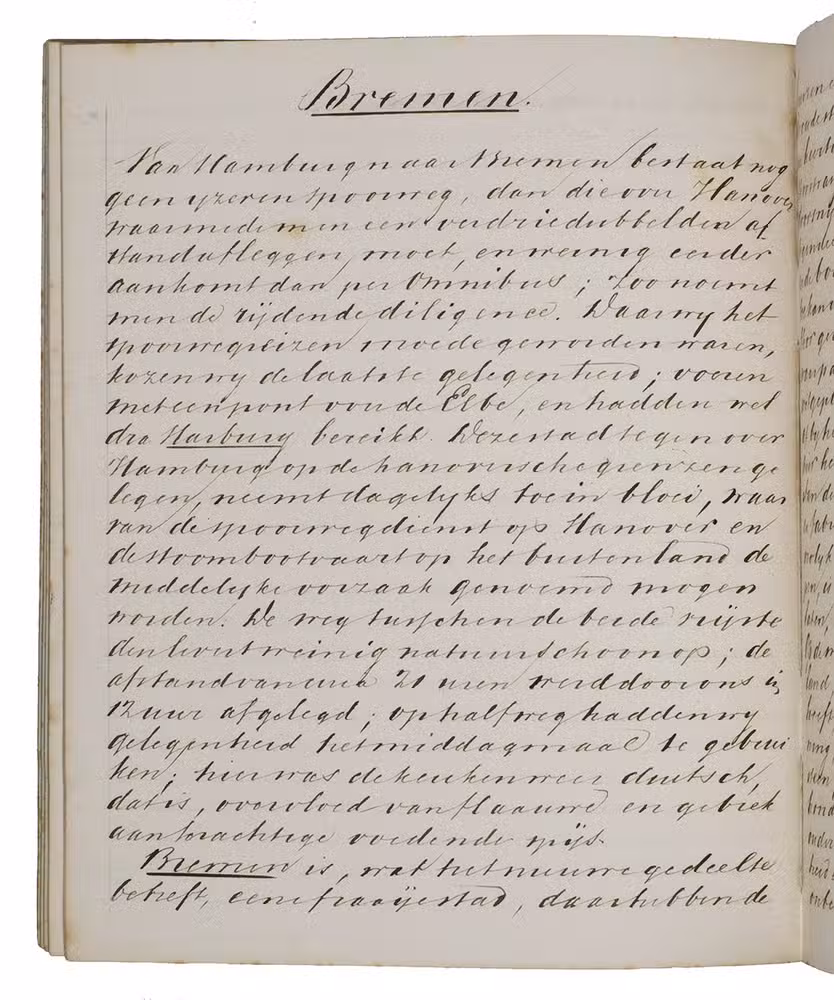 Bremen.
Van Hamburg naar Bremen bestaat nog
geen yzeren spoorweg, dan die over Hanover
waarmede men een verdriedubbelden af
stand afleggen moet, en weinig eerder
aankomt dan per Omnibus; zoo noemt
men de rijdende diligence. Daar wy het
spoorwegreizen moede geworden waren,
kozen wy de laatste gelegenheid; voeren
met een pont over de Elbe, en hadden wel
dra Harburg bereikt. Deze stad tegen over
Hamburg op de hanoversche grenzen ge
legen, neemt dagelyks toe in bloei, waar
van de spoorwegdienst op Hanover en
de stoombootvaart op het buitenland de
middelyke oorzaak genoemd mogen
worden. De weg tusschen de beide rijste
den levert weinig natuurschoon op; de
afstand van circa 21 uren werd door ons in
12 uur afgelegd; op halfweg hadden wy
gelegenheid het middagmaal te gebrui
ken; hier was de keuken weer duitsch,
dat is, overvloed van flaauwe en gebrek
aan krachtige voedende spijs.
Bremen is, wat het nieuwe gedeelte
betreft, eene fraaije stad, daar hebben de